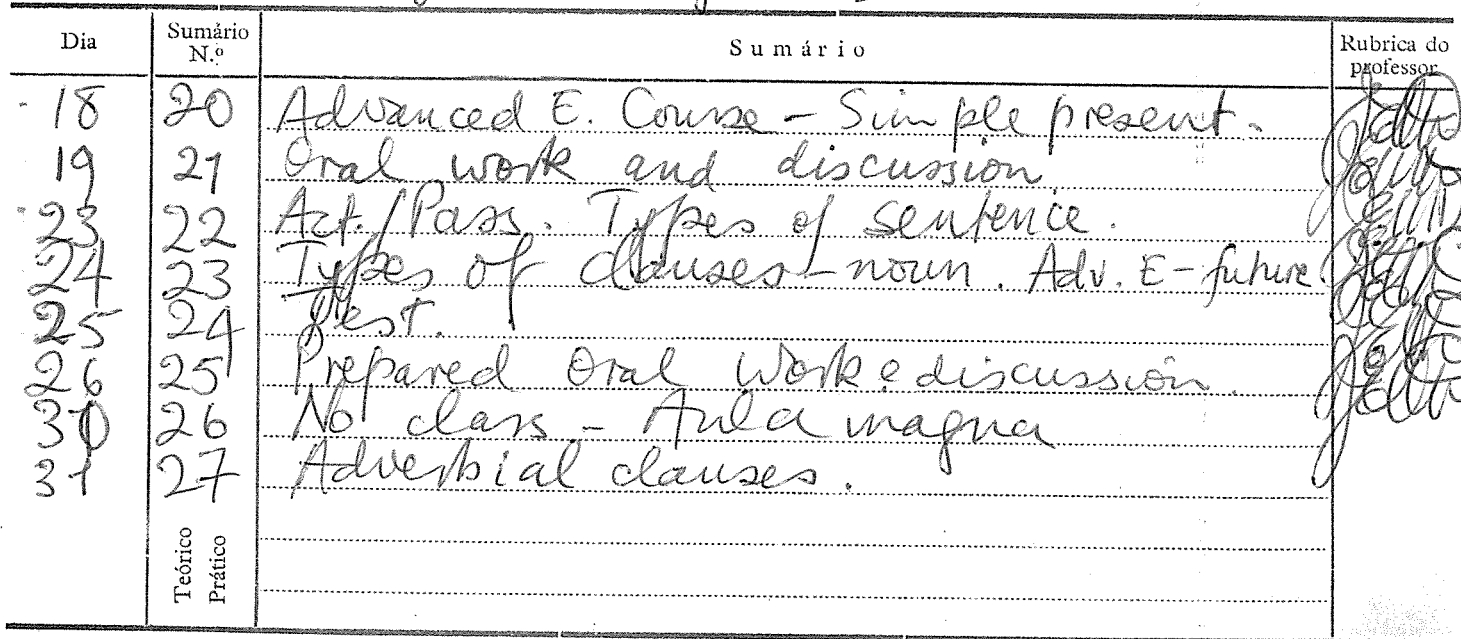 Dia Sumário N.º Sumário Rubrica do professor
18 20 Advanced E. Course - Simple present.
19 21 Oral work and discussion.
23 22 Act./Pass. Types of sentence.
24 23 Types of clauses - noun. Adv. E - future.
25 24 Test.
26 25 Prepared Oral Work e discussion.
30 26 No class - Aula magna
31 27 Adverbial clauses.
Teórico
Prático